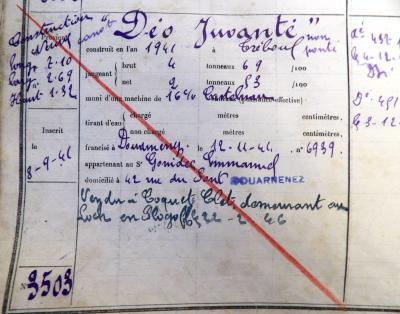 Construction
neuve
canot "Déo Juvanté" non ponté
construit en l'an 1941 à Tréboul
Long 7-10
Larg 2-69
Haut 1-32
jaugeant
brut 4 tonneaux 69 /100
net 2 tonneaux 83 /100
muni d'une machine de 16 cv (puissance effective)
tirant d'eau
chargé mètres centimètres,
non chargé mètres centimètres,
Inscrit
le
8-9-41
francisé à Douarnenez le 12-11-41. n° 6939.
appartenant au Sr Gonidec Emmanuel
domicilié à 42 rue du Port DOUARNENEZ
Vendu à Coquet Clet, demeurant au
Loch en Plogoff 22-2-46
N° 3503